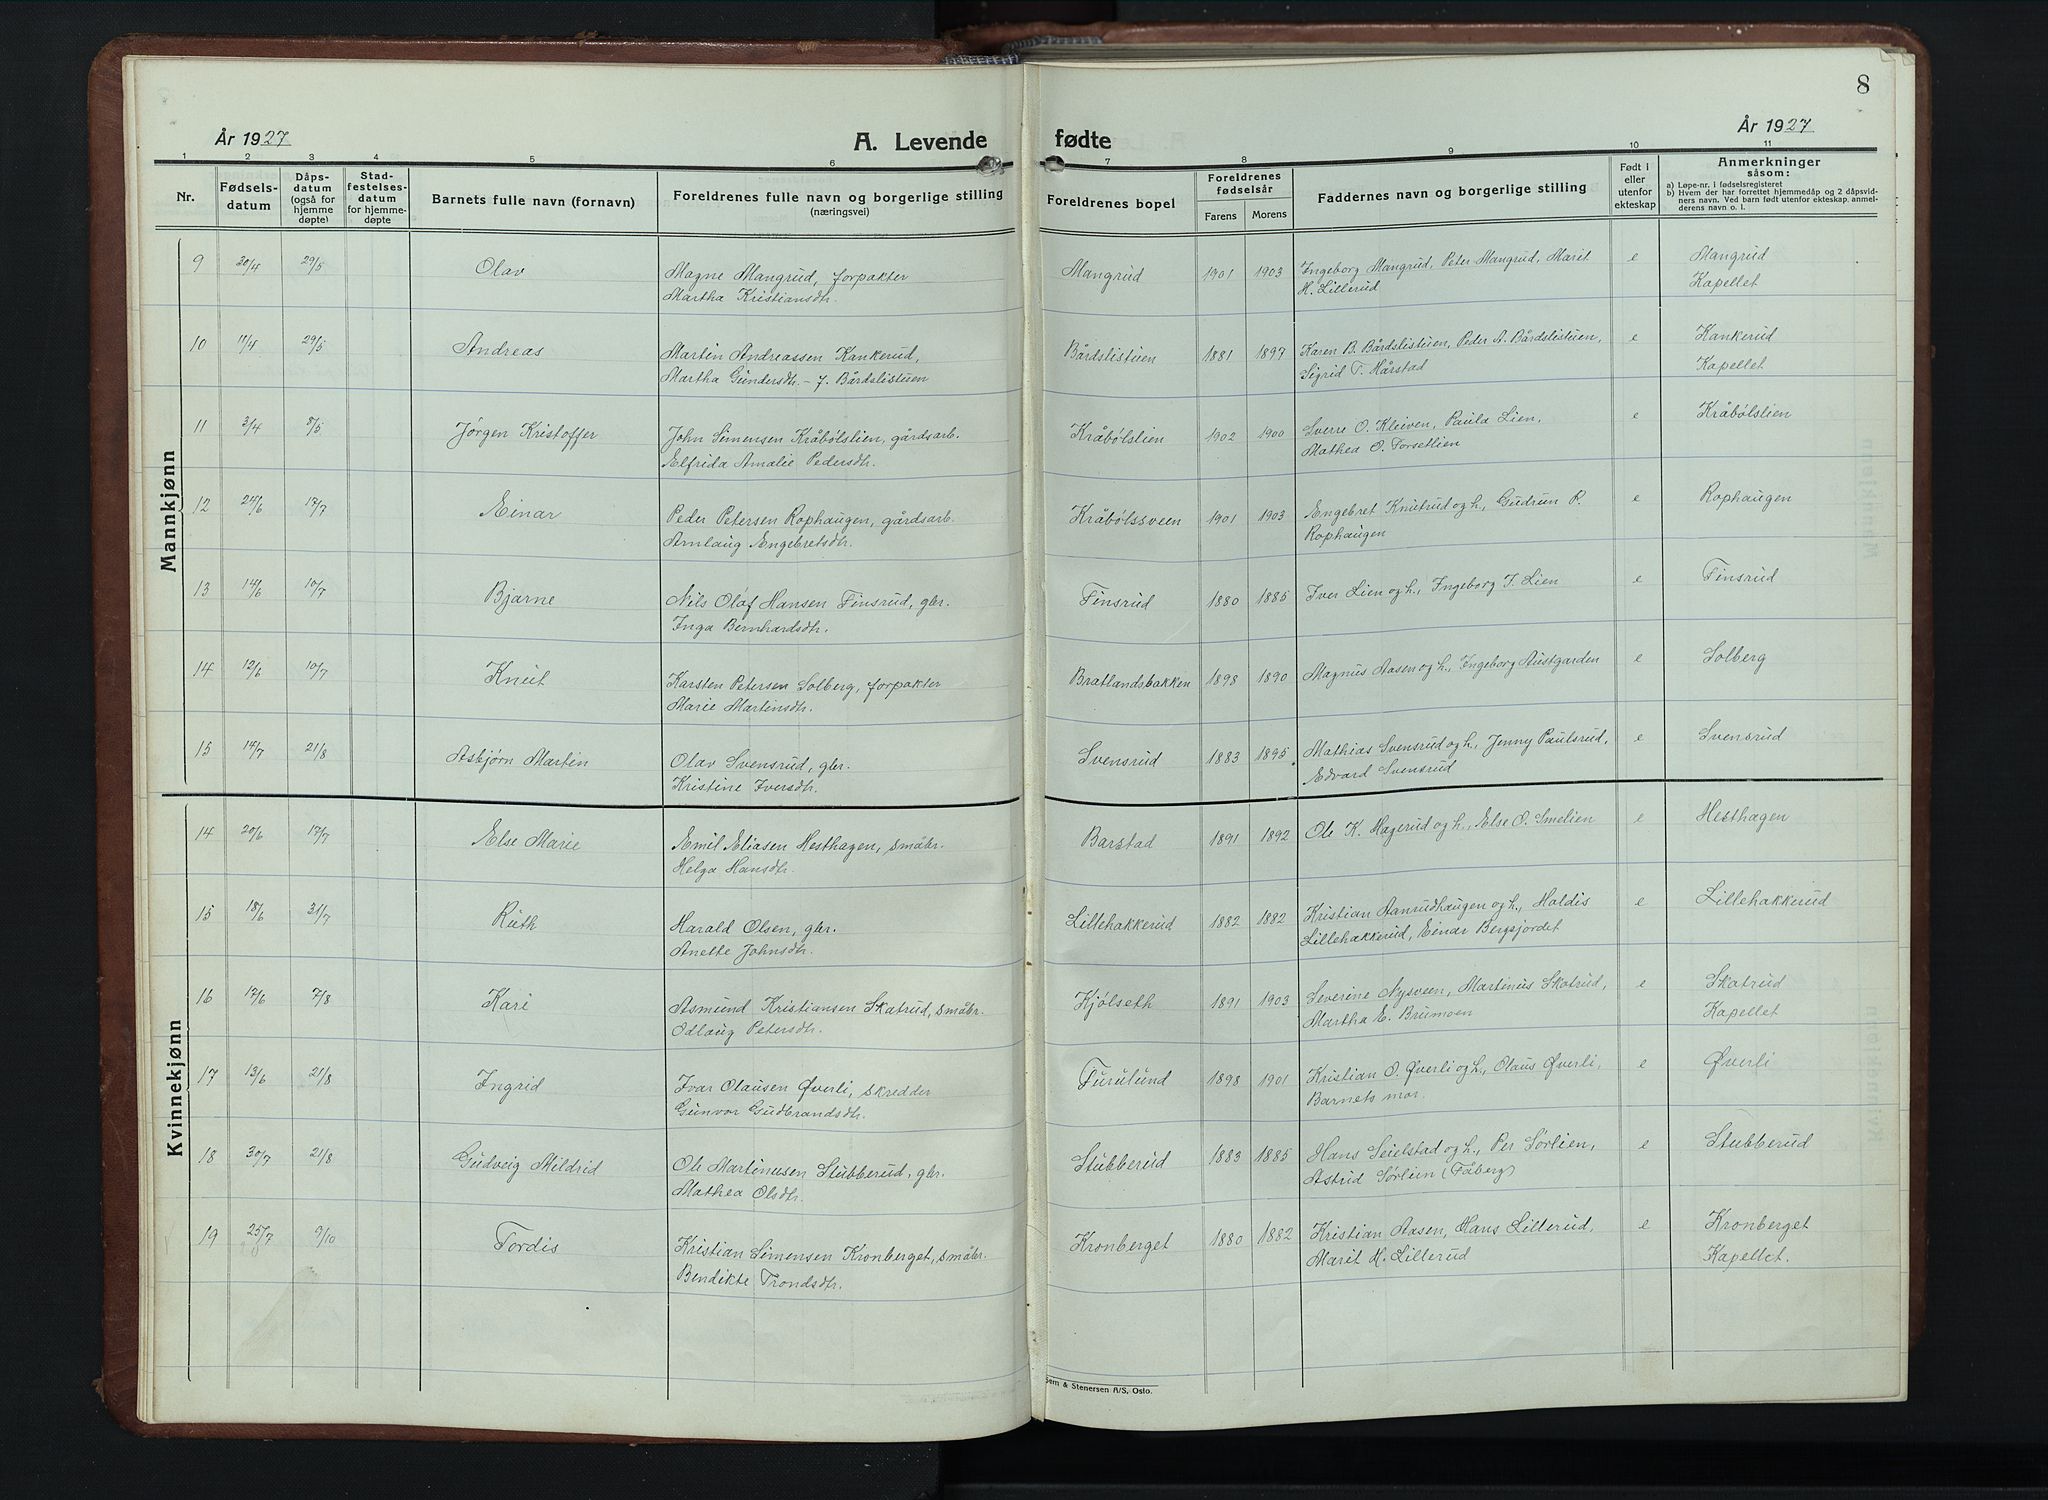 8
År 1927
A. Levende fødte
År 1927
1 2 3 4 5 6 7 8 9 10 11
Nr.
Fødselsdatum
Dåpsdatum (også for hjemmedøpte)
Stadfestelsesdatum for hjemmedøpte
Barnets fulle navn (fornavn)
Foreldrenes fulle navn og borgerlige stilling
(næringsvei)
Foreldrenes bopel
Foreldrenes fødselsår
Farens Morens
Faddernes navn og borgerlige stilling
Født i eller utenfor ekteskap
Anmerkninger såsom:
a) Løpe-nr. i fødselsregisteret
b) Hvem der har forrettet hjemmedåp og 2 dåpsvidners navn. Ved barn født utenfor ekteskap anmelderens navn o. l.
Mannkjønn
9 30/4 29/5 Olav Magne Mangrud, forpakter Mangrud 1901 1903 Ingeborg Mangrud, Peter Mangrud, Marit e Mangrud
Martha Kristiansdtr. H. Lillerud Kapellet
10 11/4 29/5 Andreas Martin Andreassen Kankerud, Bårdslistuen 1881 1897 Karen B. Bårdslistuen, Peder A. Bårdslistuen, e Kankerud
Martha Gundersdtr. - f. Bårdslistuen Sigrid T. Hårstad Kapellet
11 3/4 8/5 Jørgen Kristoffer John Simensen Kråbølslien, gårdsarb. Kråbølslien 1902 1900 Sverre O. Kleiven, Paula Lien, e Kråbølslien
Elfrida Amalie Pedersdtr. Mathea O. Forsetlien
12 24/6 17/7 Einar Peder Petersen Rophaugen, gårdsarb. Kråbølssveen 1901 1903 Engebret Knutrud og h., Gudrun P. e Rophaugen
Arnlaug Engebretsdtr. Rophaugen
13 14/6 10/7 Bjarne Nils Olaf Hansen Finsrud, gbr. Finsrud 1880 1885 Iver Lien og h., Ingeborg I. Lien e Finsrud
Inga Bernhardsdtr.
14 12/6 10/7 Knut Karsten Petersen Solberg, forpakter Bratlandsbakken 1898 1890 Magnus Aasen og h., Ingeborg Austgarden e Solberg
Marie Martinsdtr.
15 14/7 21/8 Asbjørn Martin Olav Svensrud, gbr. Svensrud 1883 1895 Mathias Svensrud og h., Jenny Paulsrud, e Svensrud
Kristine Iversdtr. Edvard Svensrud
Kvinnekjønn
14 20/6 17/7 Else Marie Emil Eliasen Hesthagen, småbr. Barstad 1891 1892 Ole K. Hagerud og h., Else O. Smelien e Hesthagen
Helga Hansdtr.
15 18/6 31/7 Ruth Harald Olsen, gbr. Lillehakkerud 1882 1882 Kristian Aanrudhaugen og h., Haldis e Lillehakkerud
Anette Johnsdtr. Lillehakkerud, Einar Bergsjordet
16 17/6 7/8 Kari Asmund Kristiansen Skatrud, småbr. Kjølseth 1891 1903 Severine Nysveen, Martinus Skatrud, e Skatrud
Odlaug Petersdtr. Martha E. Brumoen Kapellet
17 13/6 21/8 Ingrid Ivar Olausen Øverli, skredder Furulund 1898 1901 Kristian O. Øverli og h., Olaus Øverli, e Øverli
Gunvor Gudbrandsdtr. Barnets mor.
18 30/7 21/8 Gudveig Mildrid Ole Martinusen Stubberud, gbr. Stubberud 1883 1885 Hans Seielstad og h., Per Sørlien, e Stubberud
Mathea Olsdtr. Astrid Sørlien (Fåberg)
19 25/7 9/10 Tordis Kristian Simensen Kronberget, småbr. Kronberget 1880 1882 Kristian Aasen, Hans Lillerud, e Kronberget
Bendikte Trondsdtr. Marit H. Lillerud Kapellet.
Sem & Stenersen A/S, Oslo.